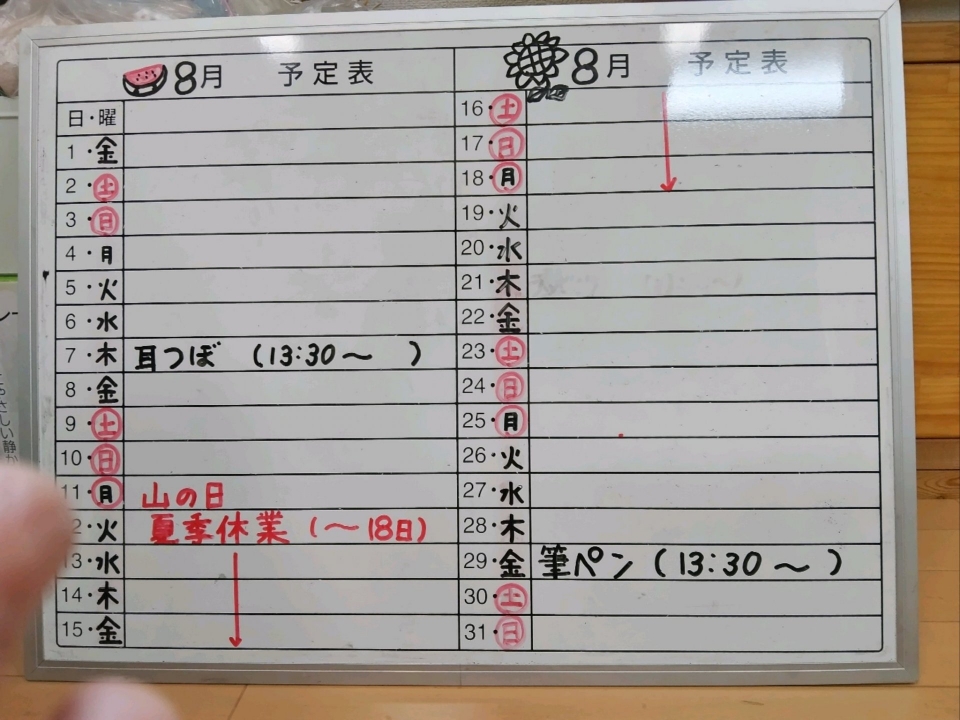 8月 予定表
日・曜
1・金
2・土
3・日
4・月
5・火
6・水
7・木 耳つぼ (13:30～ )
8・金
9・土
10・日
11・月 山の日
2・火 夏季休業 (～18日)
13・水
14・木
15・金
8月 予定表
16・土
17・日
18・月
19・火
20・水
21・木
22・金
23・土
24・日
25・月
26・火
27・水
28・木
29・金 筆ペン (13:30～ )
30・土
31・日